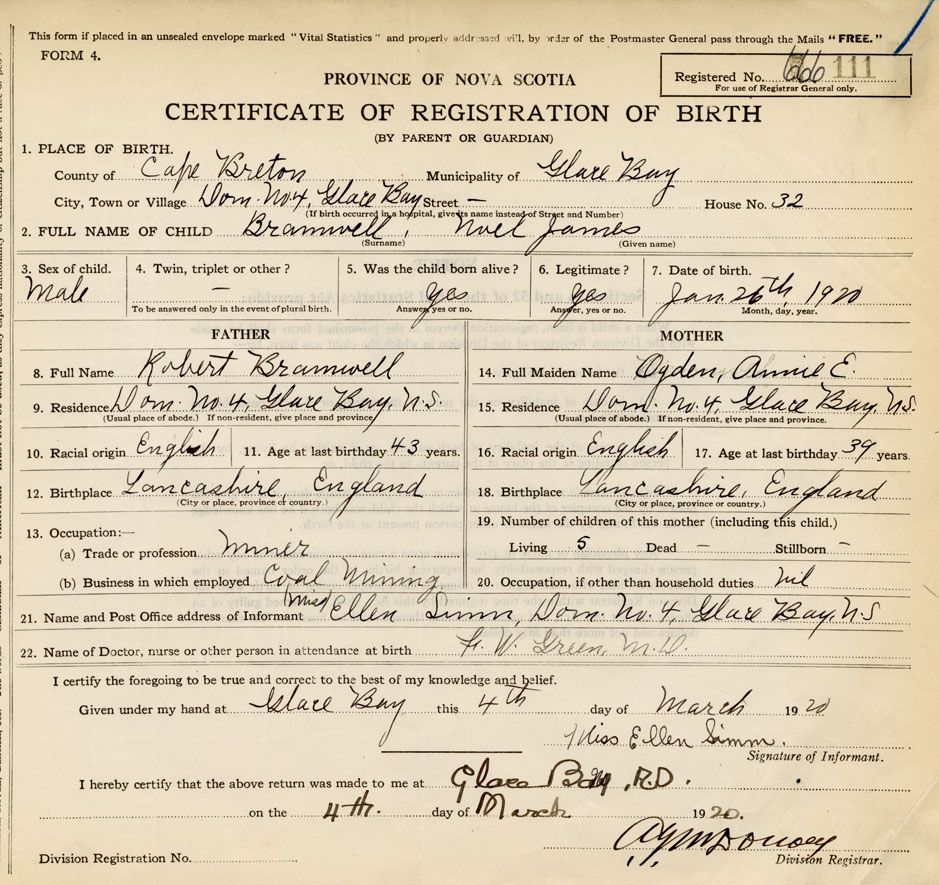 This form if placed in an unsealed envelope marked "Vital Statistics" and properly addressed will, by order of the Postmaster General pass through the Mails "FREE."
FORM 4.
Registered No. 111
For use of Registrar General only.
PROVINCE OF NOVA SCOTIA
CERTIFICATE OF REGISTRATION OF BIRTH
(BY PARENT OR GUARDIAN)
1. PLACE OF BIRTH.
County of Cape Breton Municipality of Glace Bay
City, Town or Village Dom. No 4, Glace Bay Street — House No. 32
(If birth occurred in a hospital, give its name instead of Street and Number)
2. FULL NAME OF CHILD Bramwell, Noel James
(Surname) (Given name)
3. Sex of child. 4. Twin, triplet or other? 5. Was the child born alive? 6. Legitimate? 7. Date of birth.
Male — yes yes Jan. 26th, 1920
To be answered only in the event of plural birth. Answer, yes or no. Answer, yes or no. Month, day, year.
FATHER MOTHER
8. Full Name Robert Bramwell 14. Full Maiden Name Ogden, Annie E.
9. Residence Dom. No. 4, Glace Bay, N.S. 15. Residence Dom. No. 4, Glace Bay, N.S.
(Usual place of abode.) If non-resident, give place and province. (Usual place of abode.) If non-resident, give place and province.
10. Racial origin English 11. Age at last birthday 43 years. 16. Racial origin English 17. Age at last birthday 39 years.
12. Birthplace Lancashire, England 18. Birthplace Lancashire, England
(City or place, province or country.) (City or place, province or country.)
13. Occupation:— 19. Number of children of this mother (including this child.)
(a) Trade or profession Miner Living 5 Dead — Stillborn —
(b) Business in which employed Coal Mining 20. Occupation, if other than household duties nil
21. Name and Post Office address of Informant (Miss) Ellen Simm, Dom. No. 4, Glace Bay, N.S
22. Name of Doctor, nurse or other person in attendance at birth W. Green, M.D.
I certify the foregoing to be true and correct to the best of my knowledge and belief.
Given under my hand at Glace Bay this 4th day of March 1920
Miss Ellen Simm.
Signature of Informant.
I hereby certify that the above return was made to me at Glace Bay, R.D.
on the 4th. day of March 1920.
Division Registration No. Division Registrar.